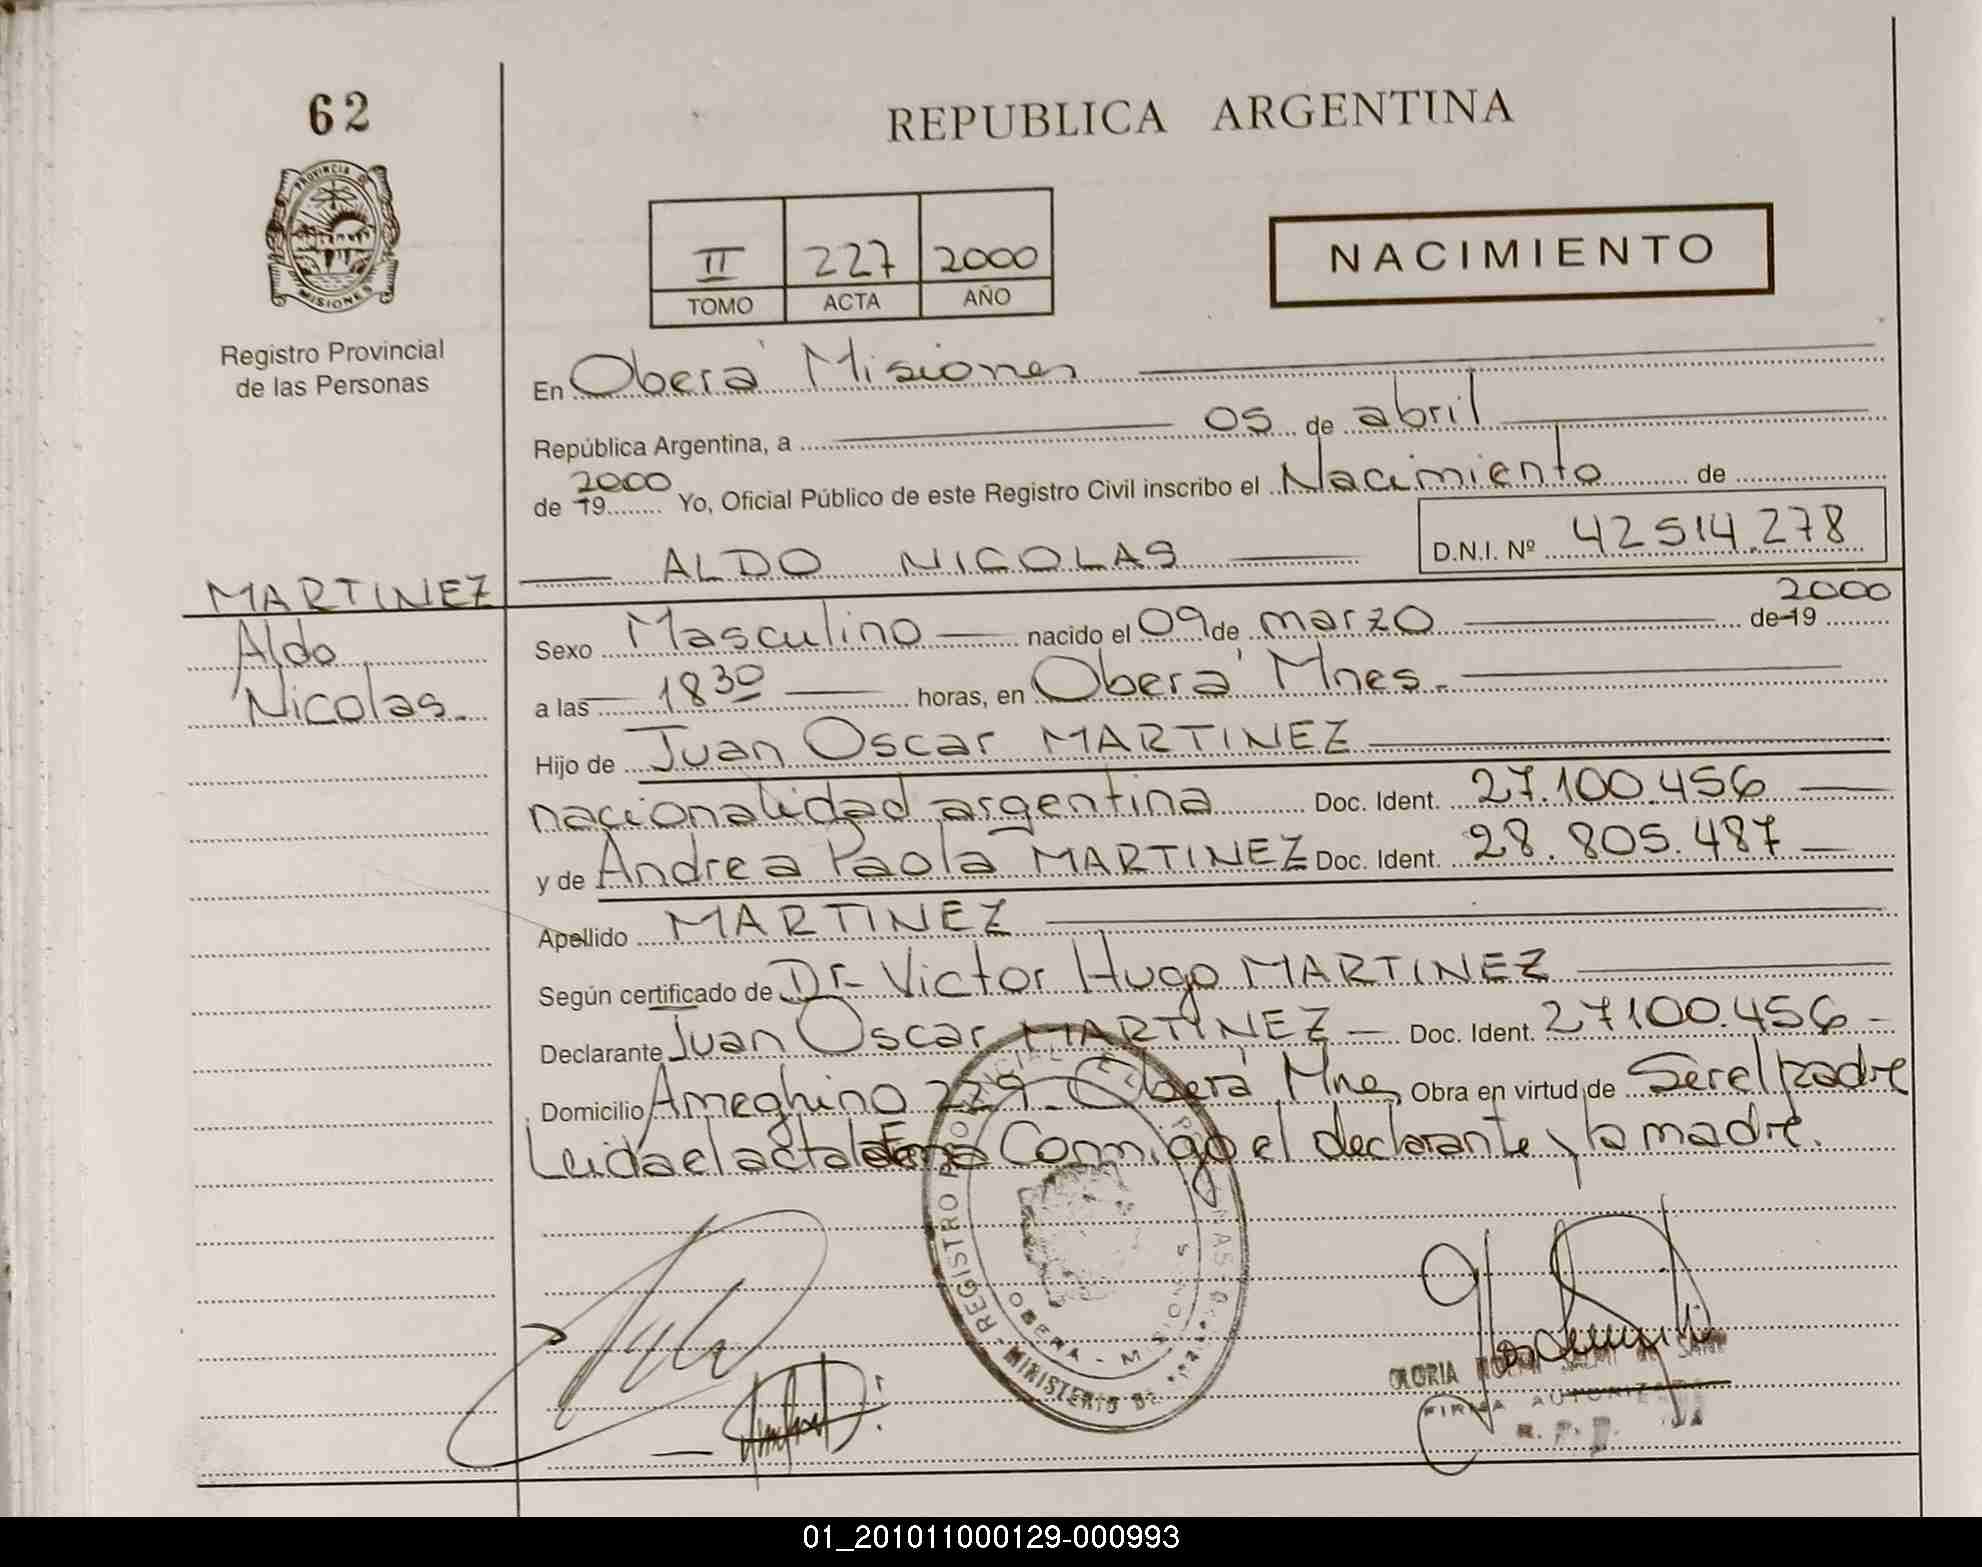 62
PROVINCIA D
MISIONES
Registro Provincial
de las Personas
MARTINEZ
Aldo
Nicolas.
REPUBLICA ARGENTINA
II 227 2000
TOMO ACTA AÑO
NACIMIENTO
En Oberá Misiones
República Argentina, a 05 de abril
de 19 2000 Yo, Oficial Público de este Registro Civil inscribo el Nacimiento de
ALDO NICOLAS D.N.I. Nº 42514.278
Sexo Masculino nacido el 09 de marzo de 19 2000
a las 18 30 horas, en Oberá Mnes.
Hijo de Juan Oscar MARTINEZ
nacionalidad argentina Doc. Ident. 27.100.456
y de Andrea Paola MARTINEZ Doc. Ident. 28.805.487
Apellido MARTINEZ
Según certificado de Dr. Victor Hugo MARTINEZ
Declarante Juan Oscar MARTINEZ Doc. Ident. 27100.456
Domicilio Ameghino 229 - Oberá Mnes Obra en virtud de Ser el padre
Leida el acta Conmigo el declarante y la madre.
REGISTRO
OBERA - MISIONES
MINISTERIO DE
GLORIA
FIRMA AUTORIZADA
01_201011000129-000993